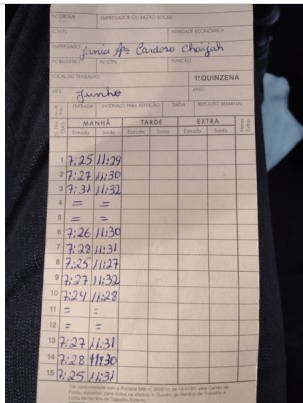 Nº ORDEM EMPREGADOR OU RAZÃO SOCIAL
C.N.P.J. ATIVIDADE ECONÔMICA
EMPREGADO Cardoso
Nº REGISTRO Nº CTPS FUNÇÃO
LOCAL DO TRABALHO 1ª QUINZENA
MÊS Junho ANO
ENTRADA INTERVALO PARA REFEIÇÃO SAÍDA REPOUSO SEMANAL
MANHÃ TARDE EXTRA
Entrada Saída Entrada Saída Entrada Saída
1 7:25 11:29
2 7:27 11:30
3 7:31 11:32
4 = =
5 = =
6 7:26 11:30
7 7:28 11:31
8 7:25 11:27
9 7:27 11:32
10 7:24 11:28
11 = =
12 = =
13 7:27 11:31
14 7:28 11:30
15 7:25 11:31